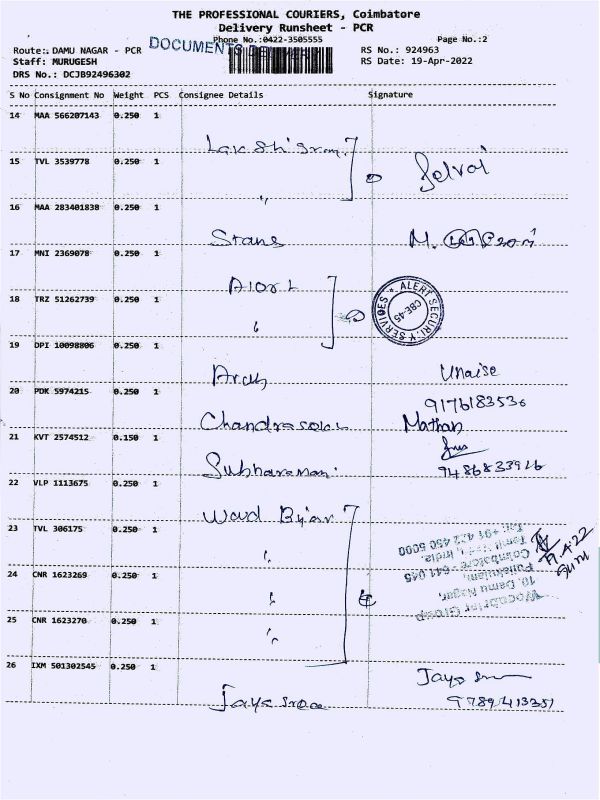 THE PROFESSIONAL COURIERS, Coimbatore
Delivery Runsheet - PCR
Phone No.:0422-3505555 Page No.:2
Route:. DAMU NAGAR - PCR DOCUMENTS RS No.: 924963
Staff: MURUGESH RS Date: 19-Apr-2022
DRS No.: DCJB92496302
S No Consignment No Weight PCS Consignee Details Signature
14 MAA 566207143 0.250 1
15 TVL 3539778 0.250 1
Selvaj
16 MAA 283401838 0.250 1
Stans M.
17 MNI 2369078 0.250 1
18 TRZ 51262739 0.250 1
ALERT SECURITY SERVICES
CBE-45
19 DPI 10098806 0.250 1
Unaise
9176183536
20 PDK 5974215 0.250 1
Mathan
21 KVT 2574512 0.150 1
Subharaman. 9486833926
22 VLP 1113675 0.250 1
Ward
23 TVL 306175 0.250 1
19.4.22
24 CNR 1623269 0.250 1
Woodbriar Group
10, Damu Nagar,
Puliakulam,
Coimbatore - 641 045
Tamil Nadu, India.
Tel: +91 422 450 5000
25 CNR 1623270 0.250 1
26 IXM 501302545 0.250 1
Jayasree
9789413351